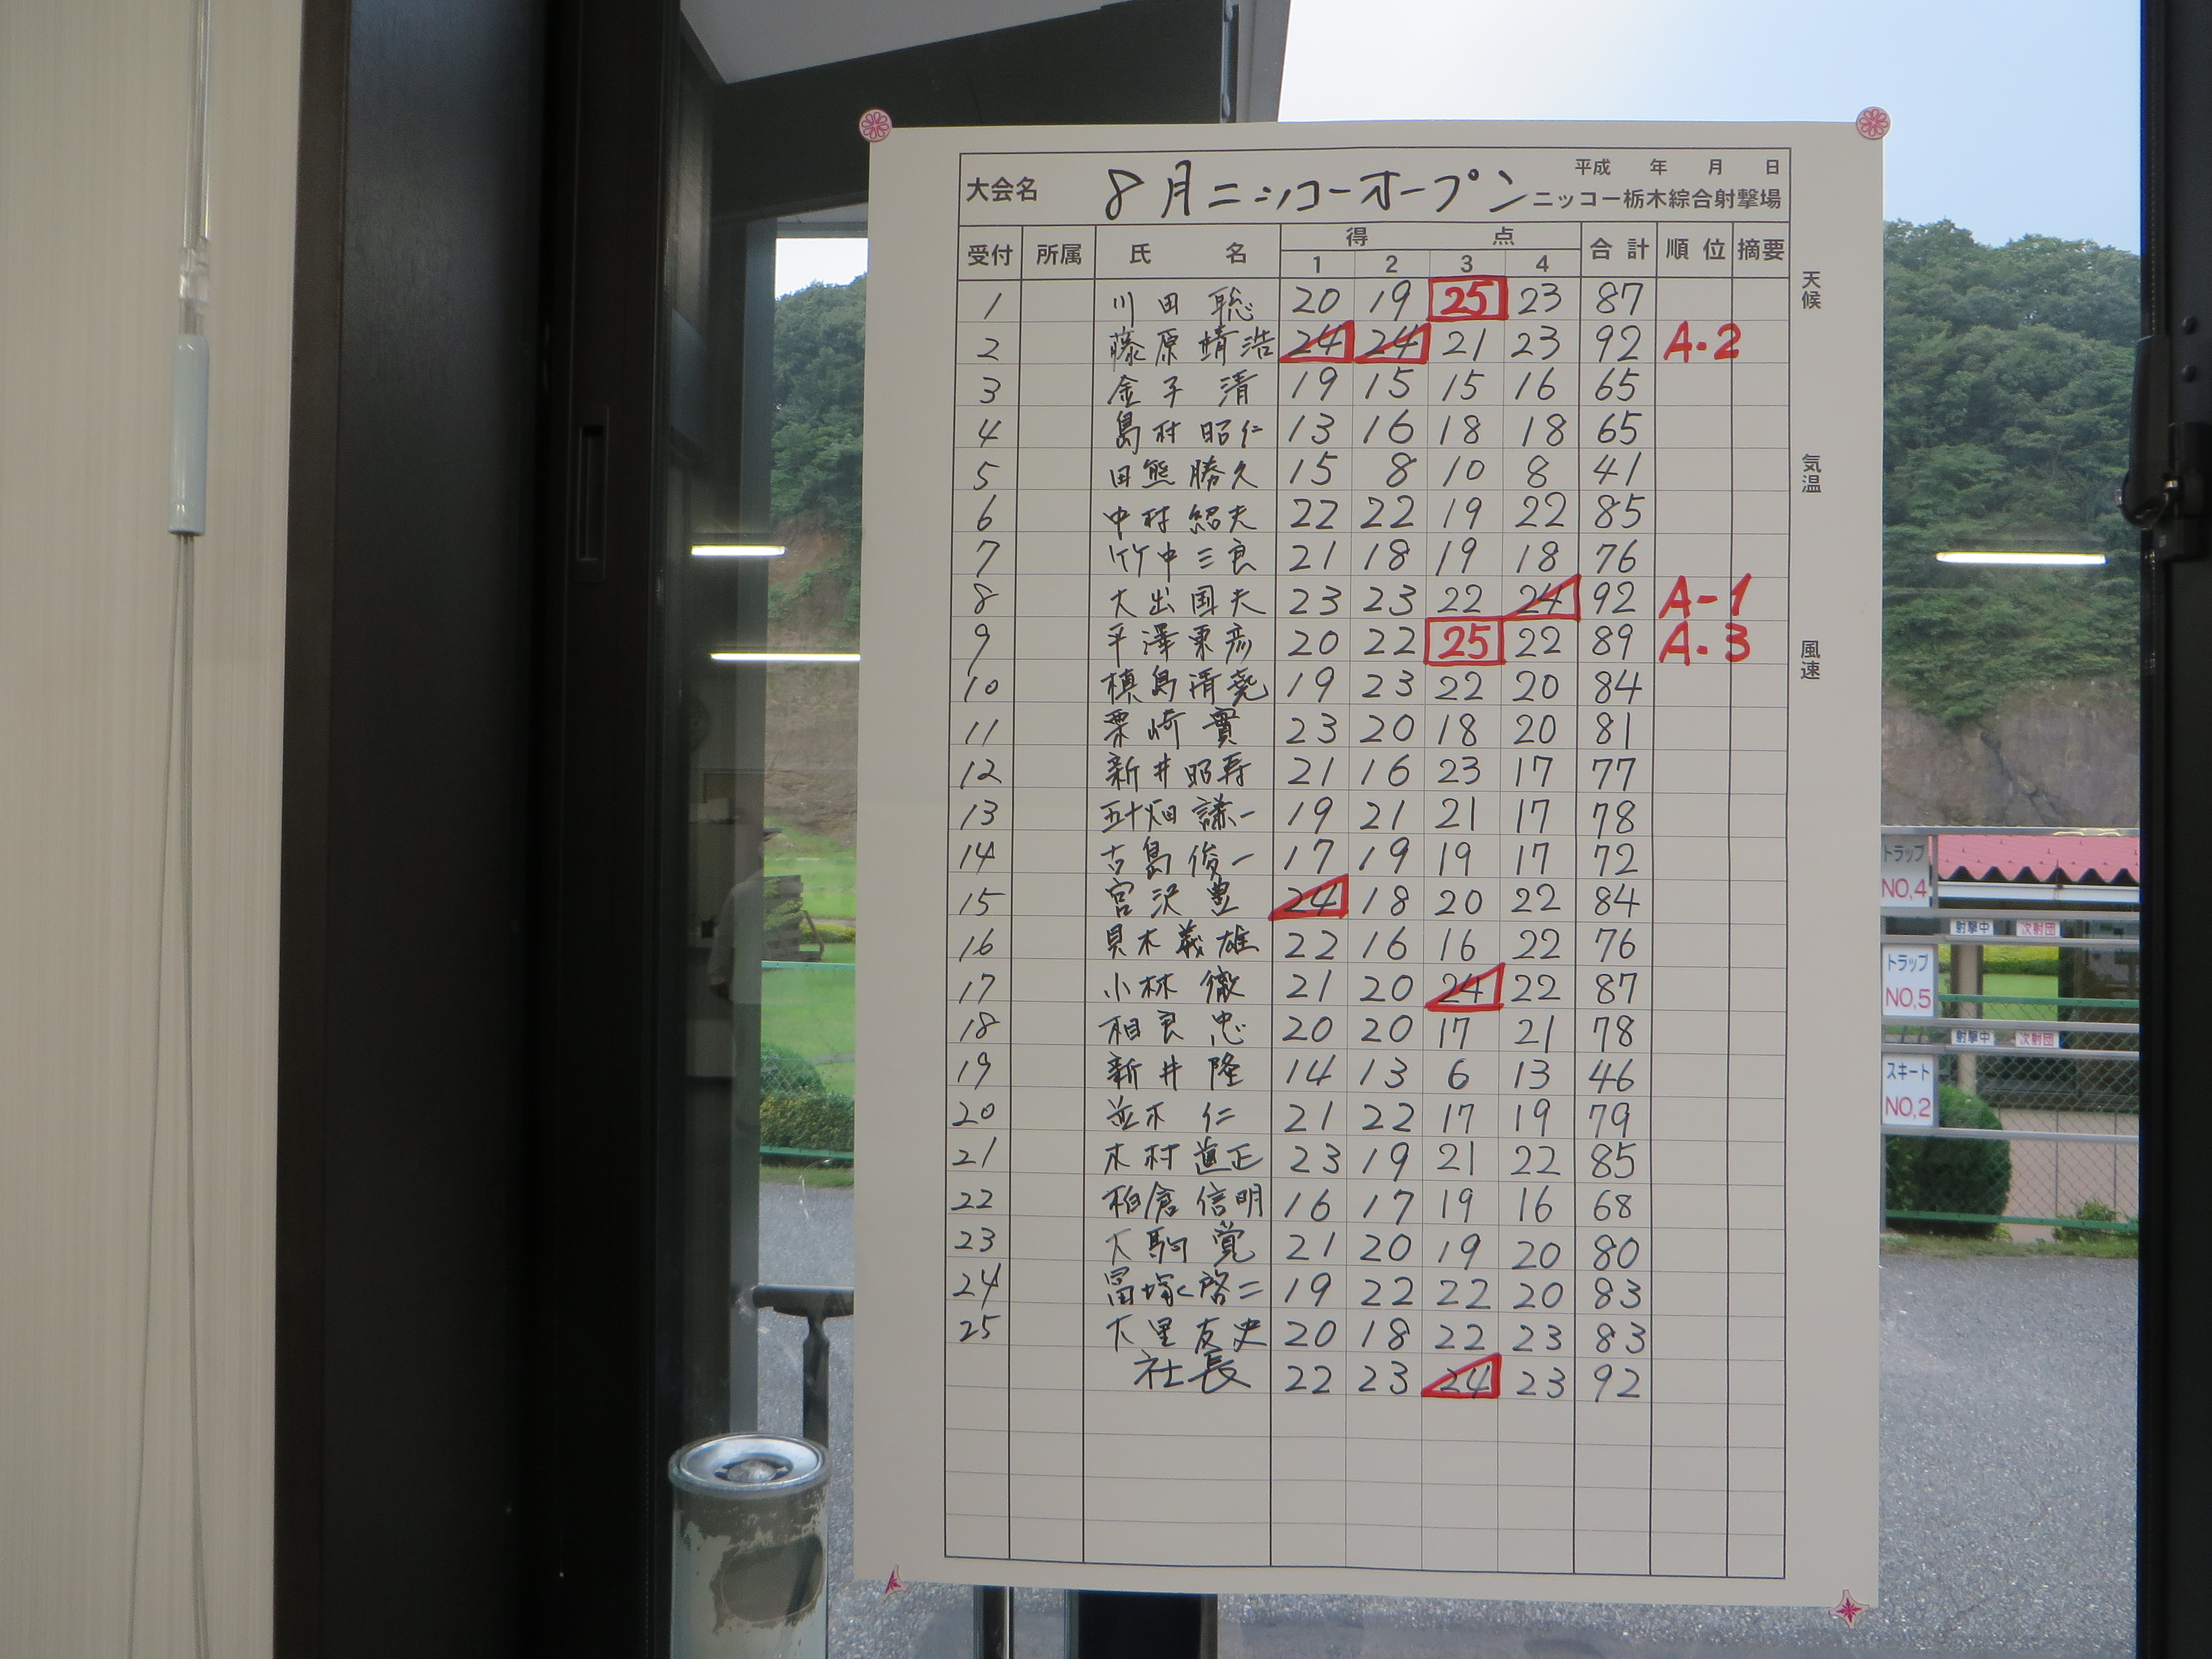 平成 年 月 日
大会名 8月ニッコーオープン ニッコー栃木綜合射撃場
受付 所属 氏 名 得 点 合 計 順 位 摘要
1 2 3 4
1 川田 聡 20 19 25 23 87
2 藤原靖浩 24 24 21 23 92 A-2
3 金子 清 19 15 15 16 65
4 島村昭仁 13 16 18 18 65
5 田熊勝久 15 8 10 8 41
6 中村紹夫 22 22 19 22 85
7 竹中三良 21 18 19 18 76
8 大出国夫 23 23 22 24 92 A-1
9 平澤東彦 20 22 25 22 89 A-3
10 槙島清尭 19 23 22 20 84
11 栗崎 實 23 20 18 20 81
12 新井昭寿 21 16 23 17 77
13 五十畑謙一 19 21 21 17 78
14 古島俊一 17 19 19 17 72
15 宮沢 豊 24 18 20 22 84
16 貝木義雄 22 16 16 22 76
17 小林 徹 21 20 24 22 87
18 相良 忠 20 20 17 21 78
19 新井 隆 14 13 6 13 46
20 並木 仁 21 22 17 19 79
21 木村直正 23 19 21 22 85
22 柏倉信明 16 17 19 16 68
23 大駒 覚 21 20 19 20 80
24 冨塚啓二 19 22 22 20 83
25 大里友史 20 18 22 23 83
社長 22 23 24 23 92
天候
気温
風速
トラップ
NO,4
射撃中 次射団
トラップ
NO,5
射撃中 次射団
スキート
NO,2